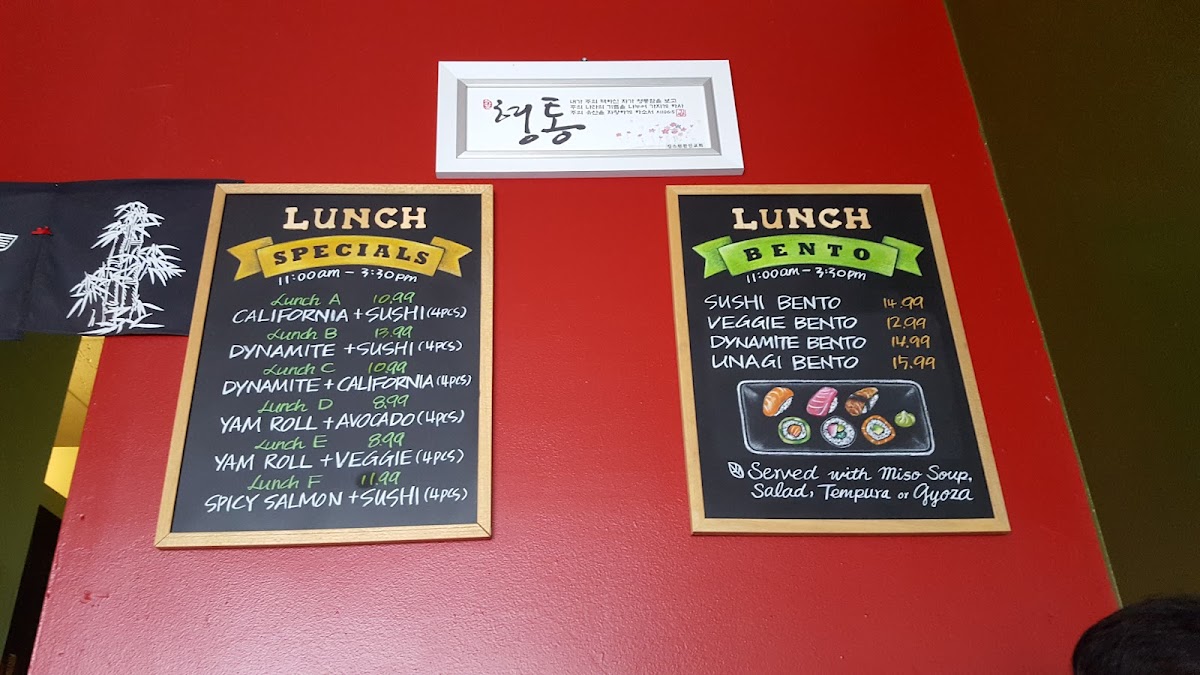 형통
내가 주의 택하신 자가 형통함을 보고
주의 나라의 기쁨을 나누어 가지게 하사
주의 유산을 자랑하게 하소서
LUNCH
SPECIALS
11:00am - 3:30pm
Lunch A 10.99
CALIFORNIA + SUSHI (4PCS)
Lunch B 13.99
DYNAMITE + SUSHI (4PCS)
Lunch C 10.99
DYNAMITE + CALIFORNIA (4PCS)
Lunch D 8.99
YAM ROLL + AVOCADO (4PCS)
Lunch E 8.99
YAM ROLL + VEGGIE (4PCS)
Lunch F 11.99
SPICY SALMON + SUSHI (4PCS)
LUNCH
BENTO
11:00am - 3:30pm
SUSHI BENTO 14.99
VEGGIE BENTO 12.99
DYNAMITE BENTO 14.99
UNAGI BENTO 15.99
Served with Miso Soup,
Salad, Tempura or Gyoza